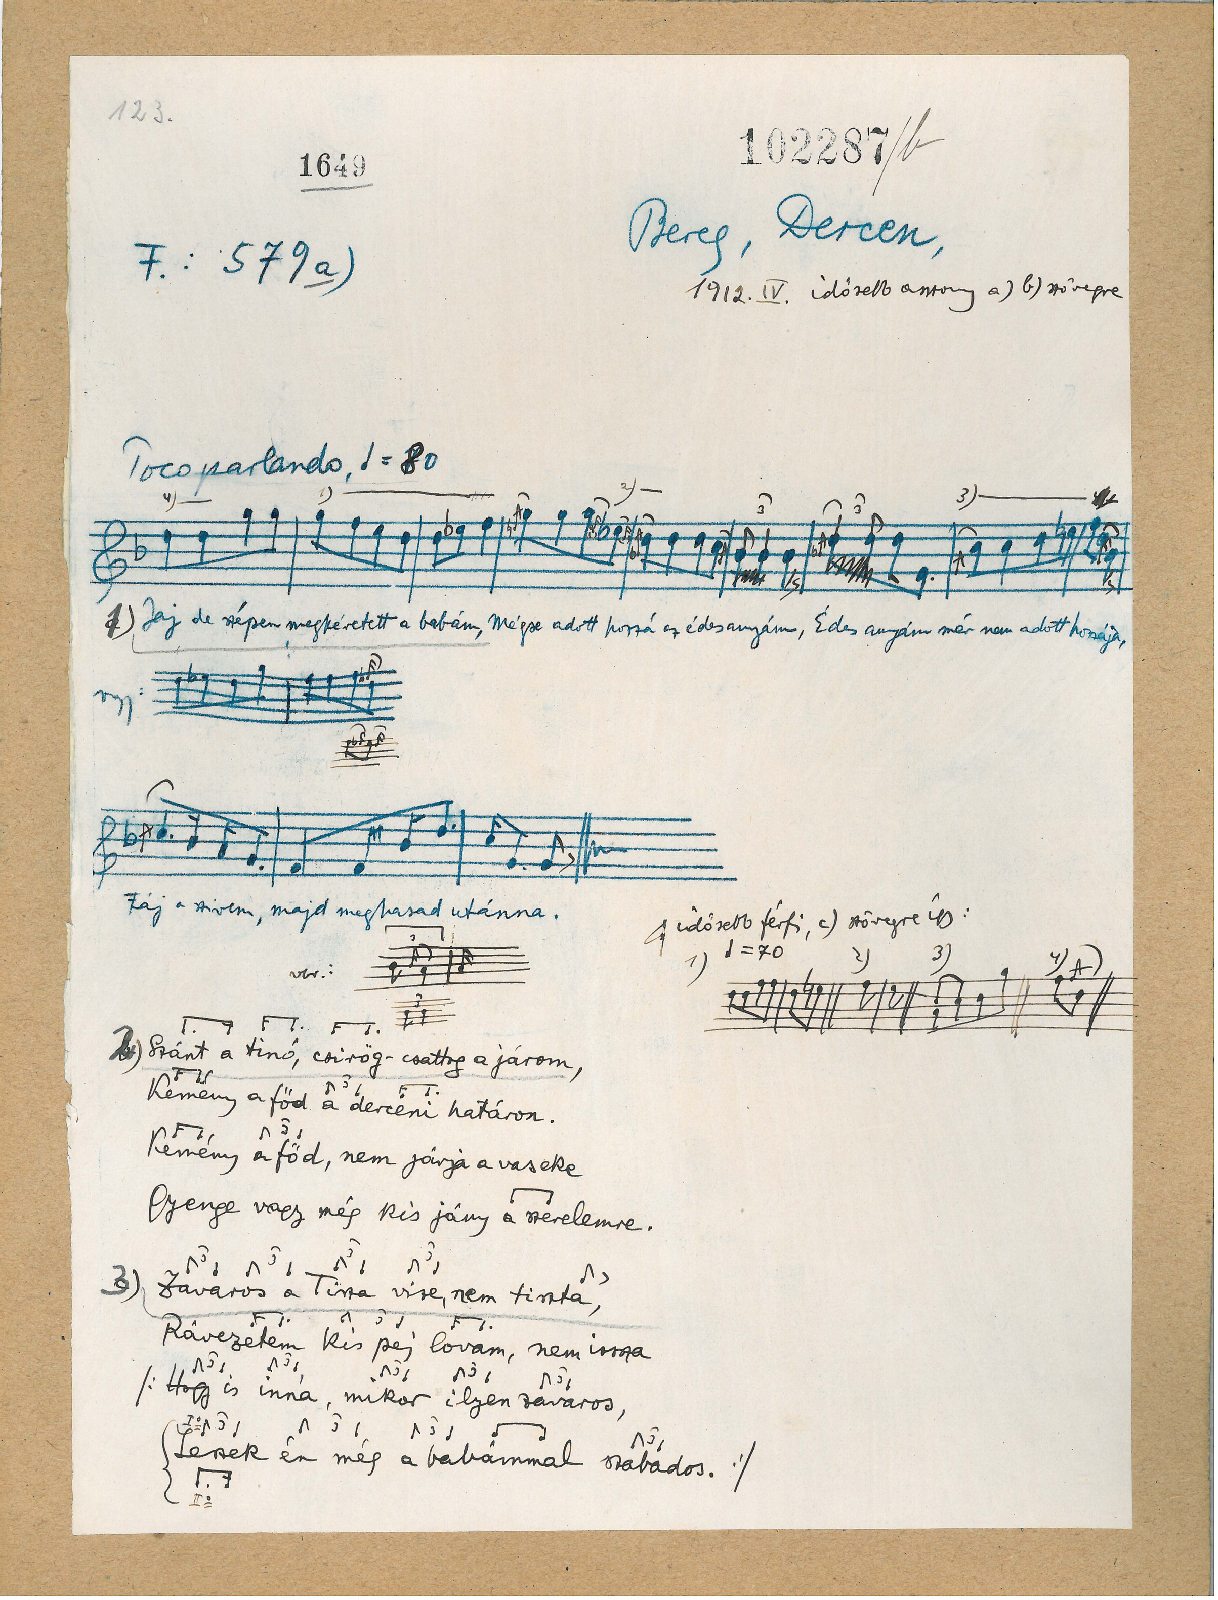 123.
1649
102287/b
Bereg, Dercen,
F.: 579a)
1912. IV. idősebb asszony a) b) szövegre
Poco parlando, ♩ = 80
4) 1) 2) 3 3 3)
1) Jaj de szépen megkéretett a babám, Mégse adott hozzá az édesanyám, Édes anyám már nem adott hozzája,
vagy:
Fáj a szivem, majd meghasad utánna.
idősebb férfi, c) szövegre így:
1) ♩=70 2) 3) 4)
var.:
2) Szánt a tinó, csirög-csattog a járom,
Kemény a főd a derceni határon.
Kemény a főd, nem járja a vaseke
Gyenge vagy még kis jány a szerelemre.
3) Zavaros a Tisza vize, nem tiszta,
Rávezetem kis pej lovam, nem issza
/: Hogy is inná, mikor ilyen zavaros,
Leszek én még a babámmal szabados. :/